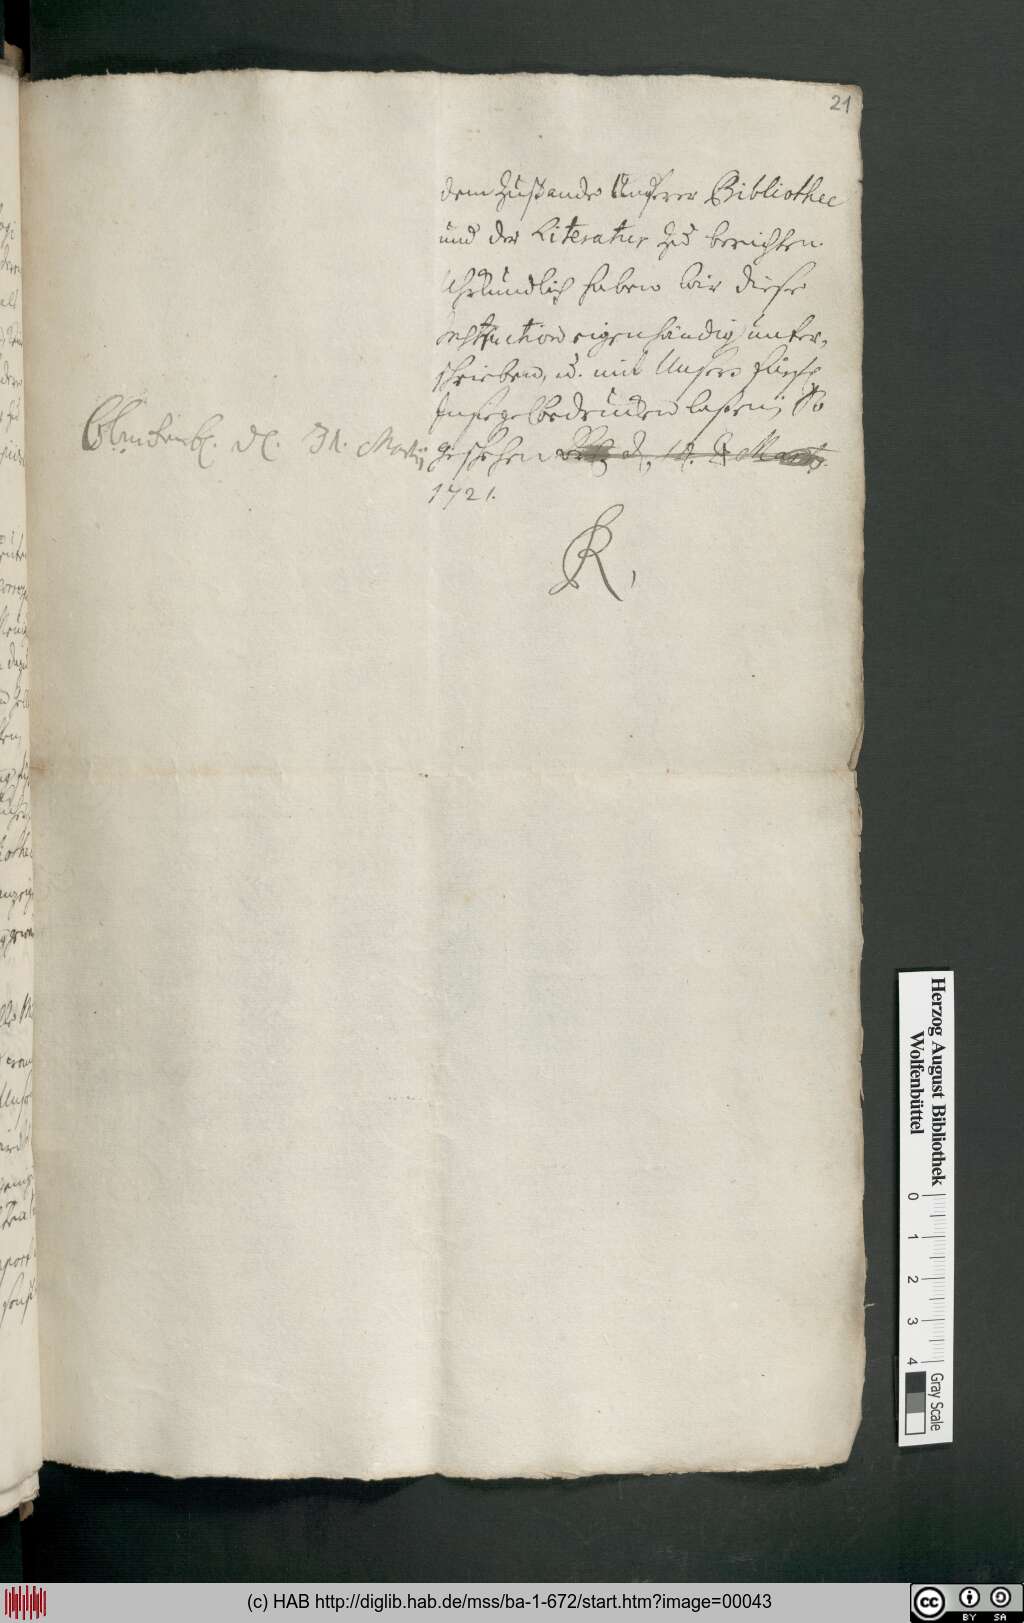 21
dem Zustande Unserer Bibliothec
und der Literatur zu berichten.
Uhrkundlich haben wir diese
Instruction eigenhändig unter-
schrieben, u. mit Unserm fürstl
Insiegel bedrucken laßen; So
geschehen d. Marty
1721.
Blanckenb. d. 31. Marty
R,
Herzog August Bibliothek
Wolfenbüttel
0 1 2 3 4
Gray Scale
(c) HAB http://diglib.hab.de/mss/ba-1-672/start.htm?image=00043
cc BY SA